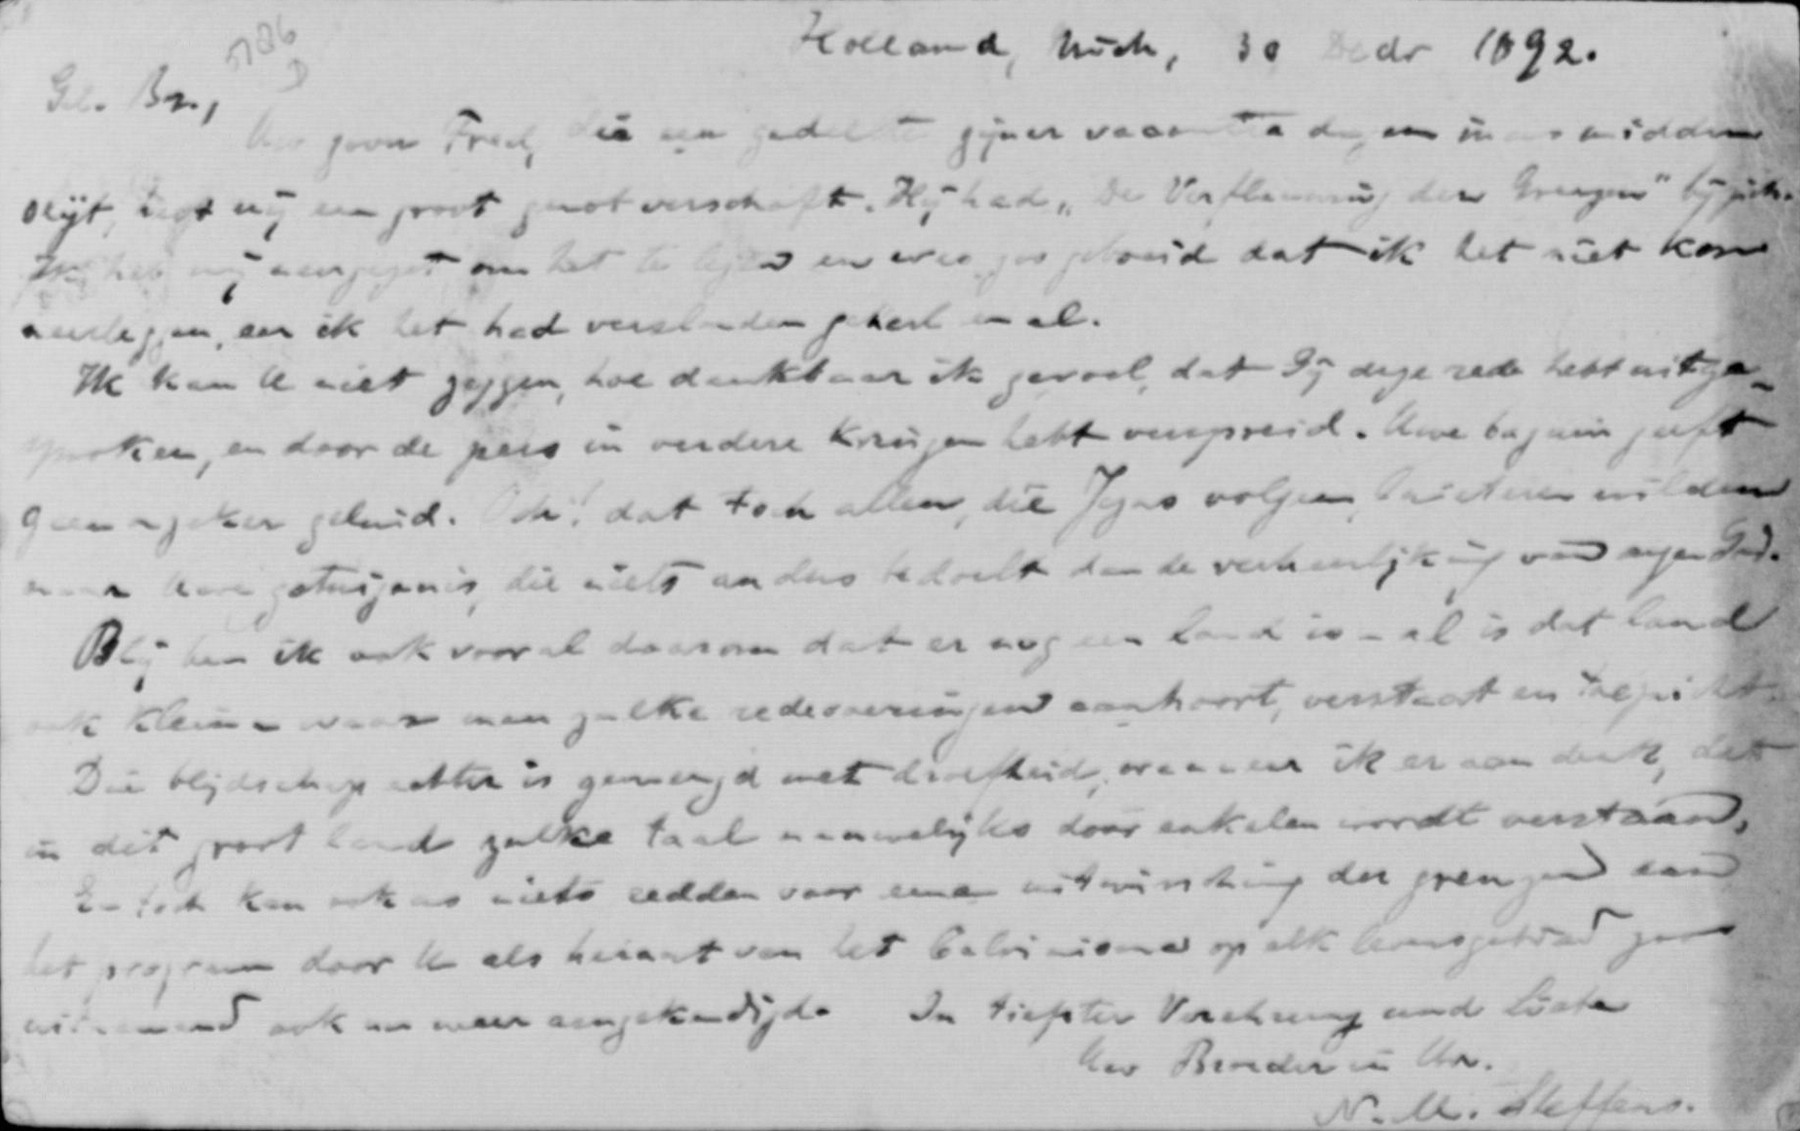 5786
D
Holland, Mich, 30 Decbr 1892.
Gel. Br.,
Uw zoon Fred, die een gedeelte zijner vacantie dagen in ons midden
slijt, heeft mij een groot genot verschaft. Hij had „De Verflauwing der Grenzen" bij zich.
Ik heb mij neergezet om het te lezen en was zoo geboeid dat ik het niet kon
neerleggen, eer ik het had verslonden geheel en al.
Ik kan U niet zeggen, hoe dankbaar ik gevoel, dat Gij deze rede hebt uitge-
sproken, en door de pers in verdere kringen hebt verspreid. Uwe bazuin geeft
geen onzeker geluid. Och! dat toch allen, die Jezus volgen, luisteren wilden
naar Uwe getuigenis, die niets anders bedoelt dan de verheerlijking van onzen God.
Blij ben ik ook vooral daarom dat er nog een land is - al is dat land
ook klein - waar men zulke redevoeringen aanhoort, verstaat en toejuicht.
Die blijdschap echter is gemengd met droefheid, wanneer ik er aan denk, dat
in dit groot land zulke taal nauwelijks door enkelen wordt verstaan.
En toch kan ook ons niets redden voor eene uitwissching der grenzen dan
het program door U als heraut van het Calvinisme op elk levensgebied zoo
uitnemend ook nu weer aangekondigd. In tiefster Verehrung und Liebe
Uw Broeder in Chr.
N. M. Steffens.